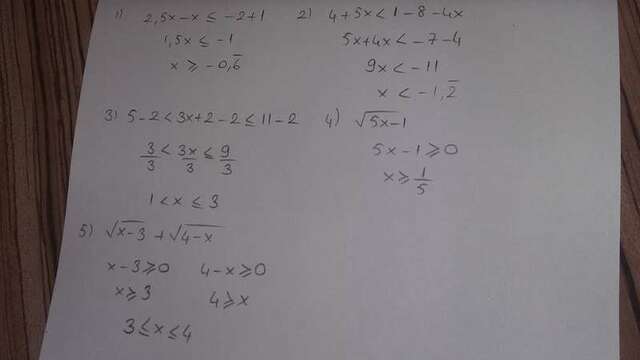 1) 2,5x-x ≤ -2+1
1,5x ≤ -1
x ⩾ -0,6̅
2) 4+5x<1-8-4x
5x+4x< -7-4
9x < -11
x < -1,2̅
3) 5-2<3x+2-2≤11-2
3/3 < 3x/3 ≤ 9/3
1<x ≤ 3
4) √5x-1
5x-1⩾0
x⩾ 1/5
5) √x-3 + √4-x
x-3⩾0 4-x⩾0
x⩾3 4⩾x
3≤x≤4